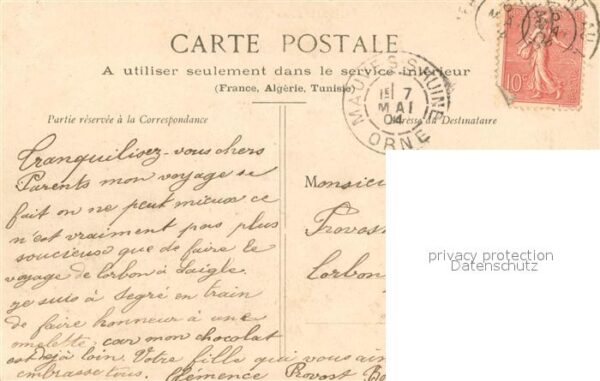 CARTE POSTALE
A utiliser seulement dans le service intérieur
(France, Algérie, Tunisie)
Partie réservée à la Correspondance
Adresse du Destinataire
MAUVES S HUINE
1E 7
MAI
04
ORNE
10c
Tranquilisez-vous chers
Parents mon voyage se
fait on ne peut mieux ce
n'est vraiment pas plus
soucieux que de faire le
voyage de Corbon à Laigle.
je suis à Segré en train
de faire honneur à une
omelette, car mon chocolat
est déjà loin. Votre fille qui vous aim
embrasse tous. Clémence Provost
Monsieu
Provos
Corbon
privacy protection
Datenschutz